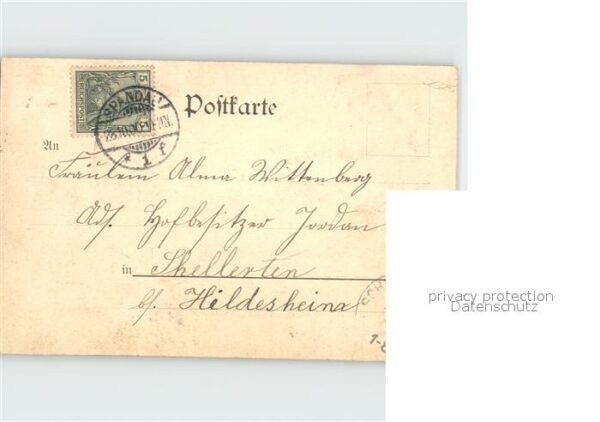 Postkarte
5
REICHSPOST
SPANDAU
* 1 f
An
Fräulein Alma Wittenberg
Adr. Hofbesitzer Jordan
in Shellerten
b/. Hildesheim
SCH
1-
privacy protection
Datenschutz